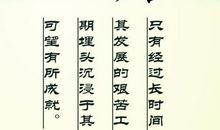 只有经过长时间
其发展的艰苦工
期埋头沉浸于其
可望有所成就。